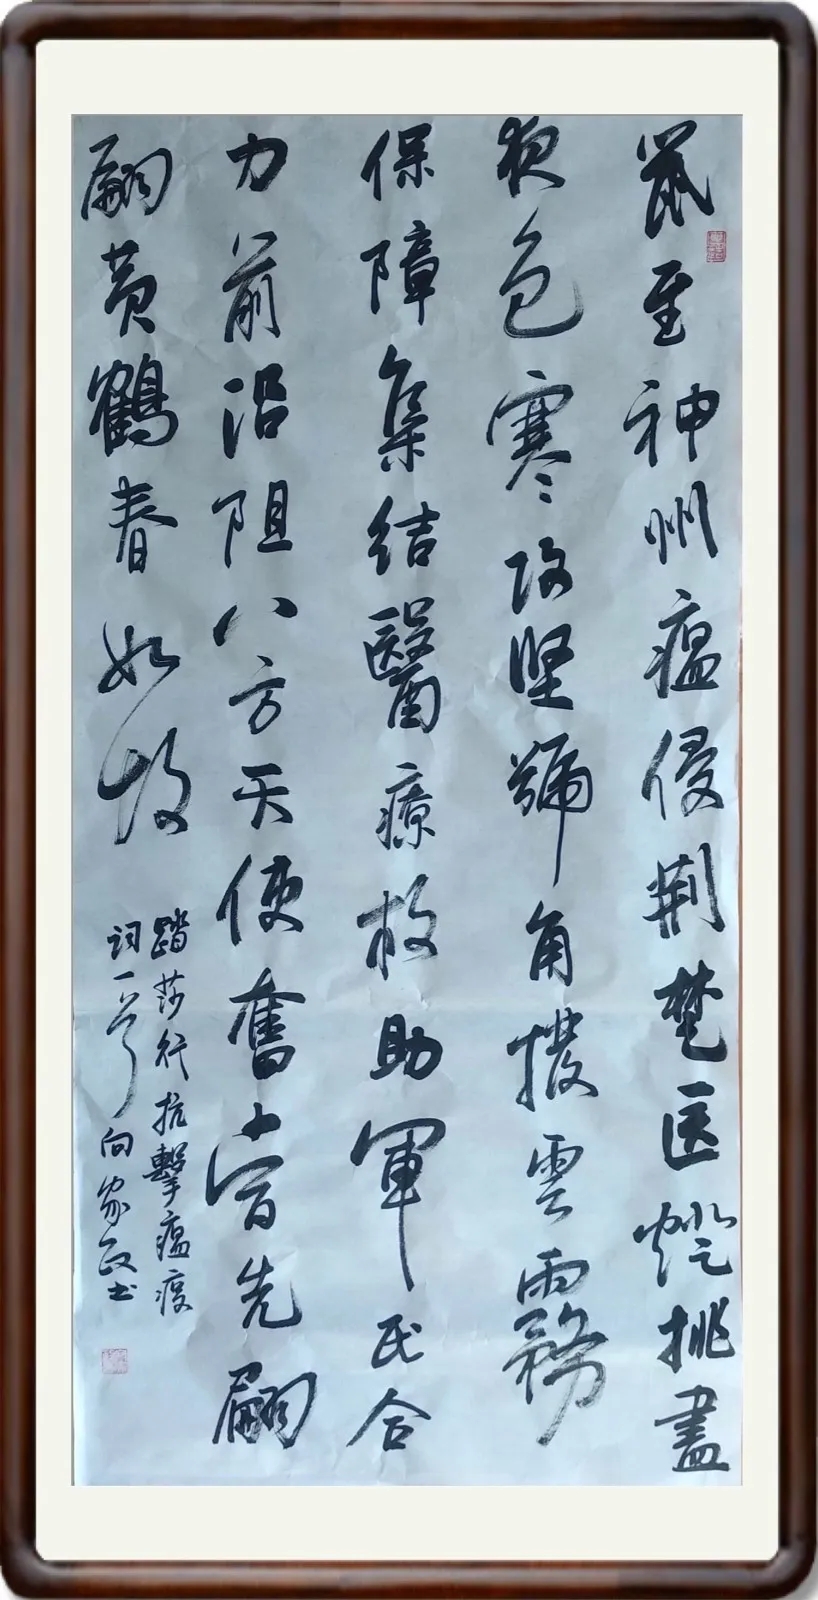 鼠至神州瘟侵荆楚医燈挑盡
夜色寒攻坚號角撥雲霧
保障集結醫療救助軍民合
力前沿阻八方天使奮當先翩
翩黄鶴春如故
踏莎行抗擊瘟疫
词一首向家政书